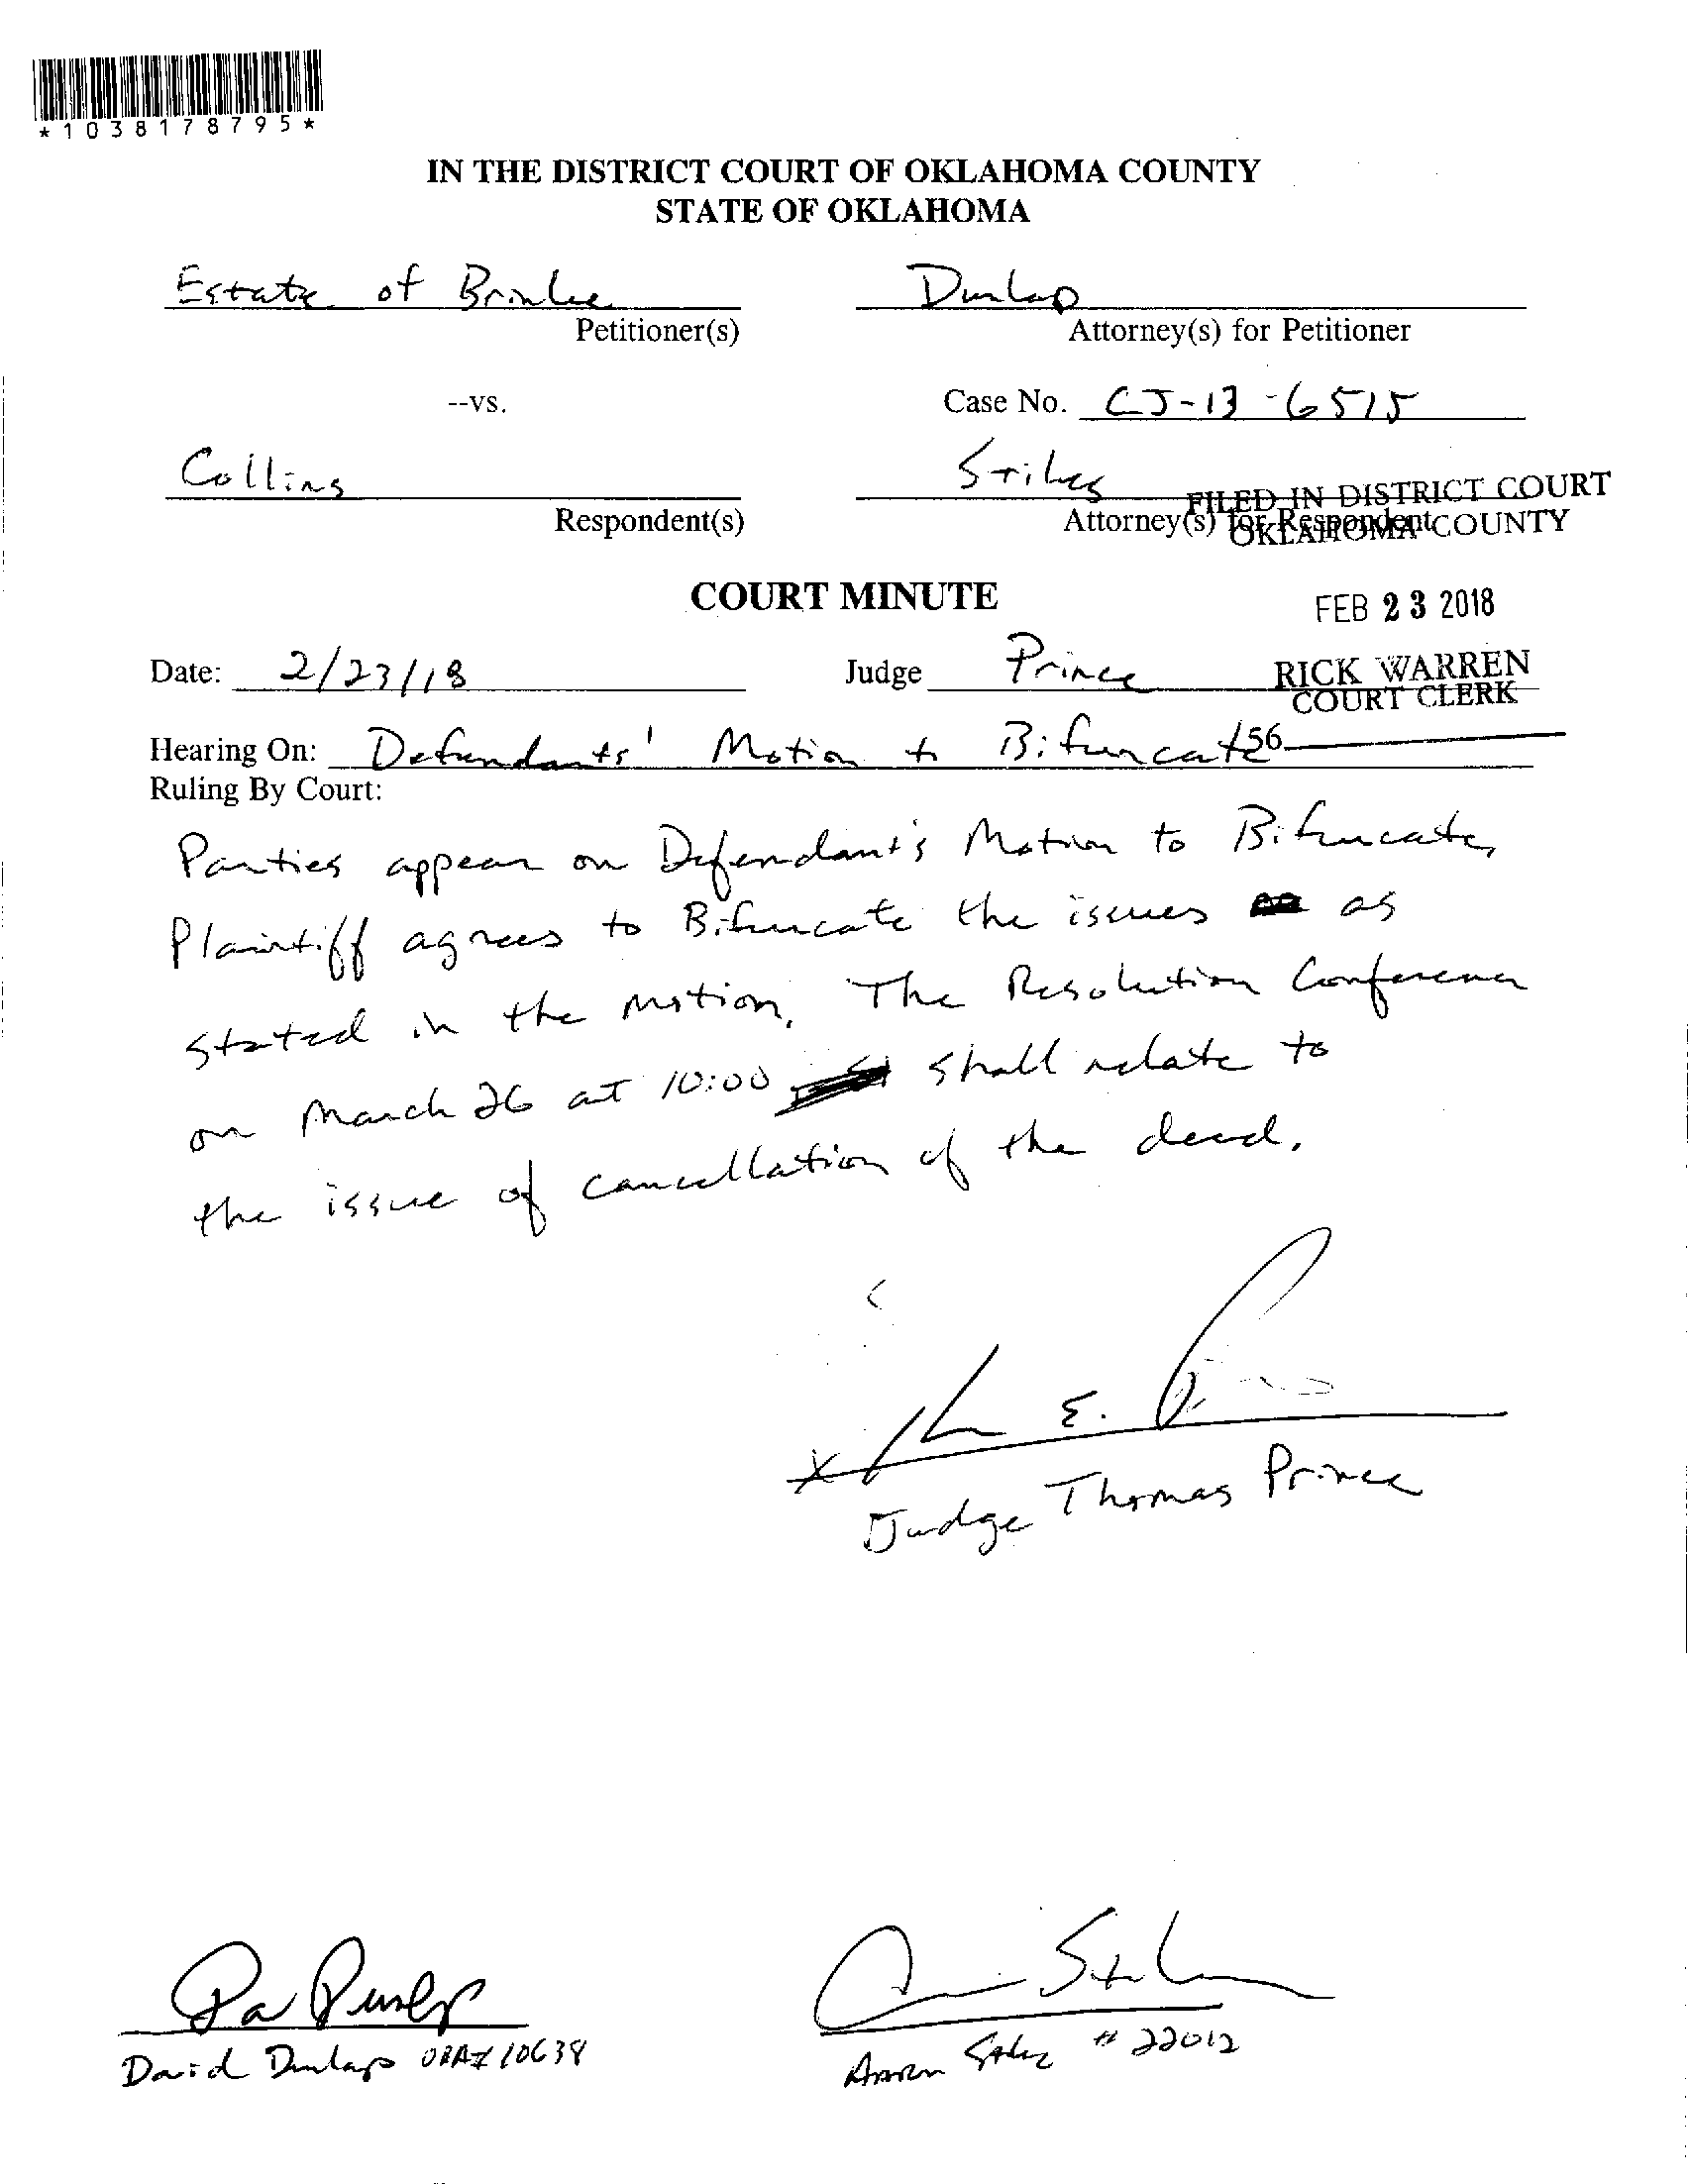 *1038178795*
IN THE DISTRICT COURT OF OKLAHOMA COUNTY
STATE OF OKLAHOMA
Estate of Brinlee
Dunlap
Petitioner(s)
Attorney(s) for Petitioner
--vs.
Case No. CJ-13-6515
Collins
Stiles
Respondent(s)
Attorney(s) for Respondent
FILED IN DISTRICT COURT
OKLAHOMA COUNTY
COURT MINUTE
FEB 23 2018
Date: 2/23/18
Judge Prince
RICK WARREN
COURT CLERK
56
Hearing On: Defendants' Motion to Bifurcate
Ruling By Court:
Parties appear on Defendant's Motion to Bifurcate,
Plaintiff agrees to Bifurcate the issues as
stated in the motion. The Resolution Conference
on March 26 at 10:00 shall relate to
the issue of cancellation of the deed.
E.
Judge Thomas Prince
David Dunlap OBA# 10639
Aaron # 22012